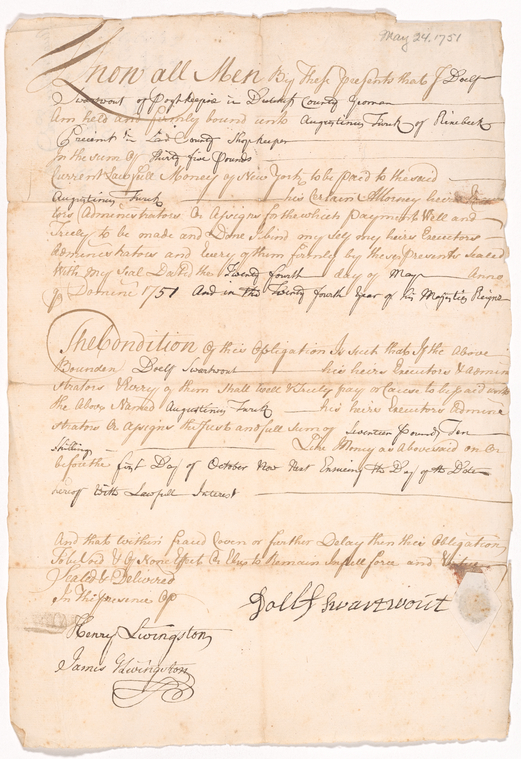 May 24. 1751
Know all Men By These Presents that I Dolf
Swarwout of Poghkeepsie in Dutchess County Yeoman
Am held and firmly bound unto Augustinus Turck of Rinebeck
Precinct in Said County Shopkeeper
In the Sum Of thirty five Pounds
Current Lawfull Money of New York to be paid to the said
Augustinus Turck his Certain Attorney heirs
tors Administrators Or Assigns for the which Payment Well and
Treely to be made and Done I bind my self my heirs Executors
Administrators and Every of them formly by these presents Sealed
With My Seal Dated the Twenty fourth day of May Anno
Domini 1751 And in the Twenty fourth Year of his Majesties Reigne
The Condition Of this Obligation Is Such that If the Above
Bounden Dolf Swarwout his heirs Executors & Admin
strators & Every of them Shall well & Treely pay or Cause to be paid unto
the Above Named Augustinus Turck his heirs Executors Admine
strators Or Assigns the Just and full sum of Seventeen Pounds Ten
Shillings Like Money as Abovesaid on Or
before the first Day of October Now Next Ensuing the Day of the Date
hereof With Lawfull Interest
And that within fraud Coven or further Delay then this Obligation
To be Void & Of None Effect Or Else to Remain In full force and Vertue
Sealed & Delivered
In The presence Of
Dolf Swartwout
Henry Livingston
James Livingston